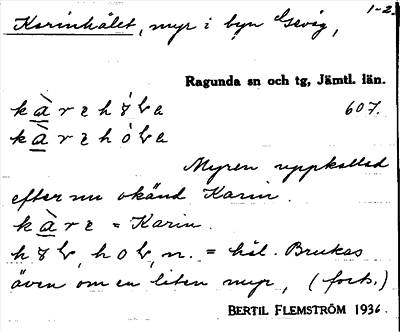 Karinhålet, myr i byn Gevåg,
1-2.
Ragunda sn och tg, Jämtl. län.
607.
Myren uppkallad
efter nu okänd Karin.
= Karin.
n. = hål. Brukas
även om en liten myr, (forts.)
BERTIL FLEMSTRÖM 1936.